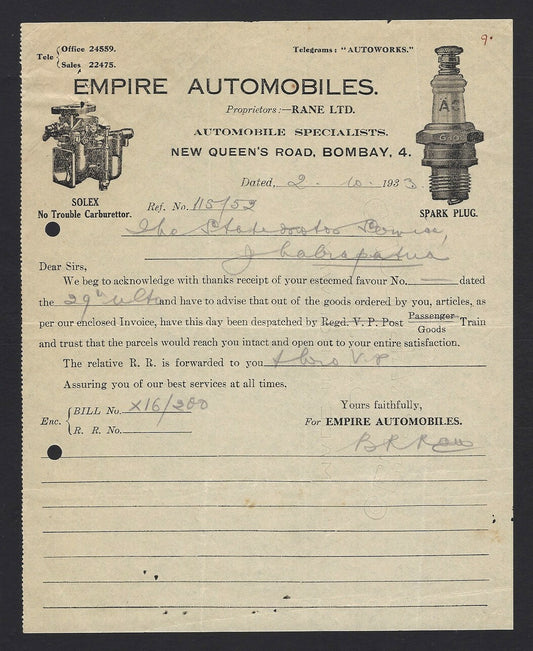 9.
Tele { Office 24559.
Sales 22475.
Telegrams: "AUTOWORKS."
EMPIRE AUTOMOBILES.
Proprietors:—RANE LTD.
AUTOMOBILE SPECIALISTS.
NEW QUEEN'S ROAD, BOMBAY, 4.
AC
SOLEX
No Trouble Carburettor.
SPARK PLUG.
Dated, 2. 10. 1933
Ref. No. 115/52
The State Motor Service,
Jhalrapatan
Dear Sirs,
We beg to acknowledge with thanks receipt of your esteemed favour No. — dated
the 29th ulto and have to advise that out of the goods ordered by you, articles, as
per our enclosed Invoice, have this day been despatched by Regd. V. P. Post Passenger Train
Goods
and trust that the parcels would reach you intact and open out to your entire satisfaction.
The relative R. R. is forwarded to you thro V.P.
Assuring you of our best services at all times.
Enc. { BILL No. X16/200
R. R. No.
Yours faithfully,
For EMPIRE AUTOMOBILES.